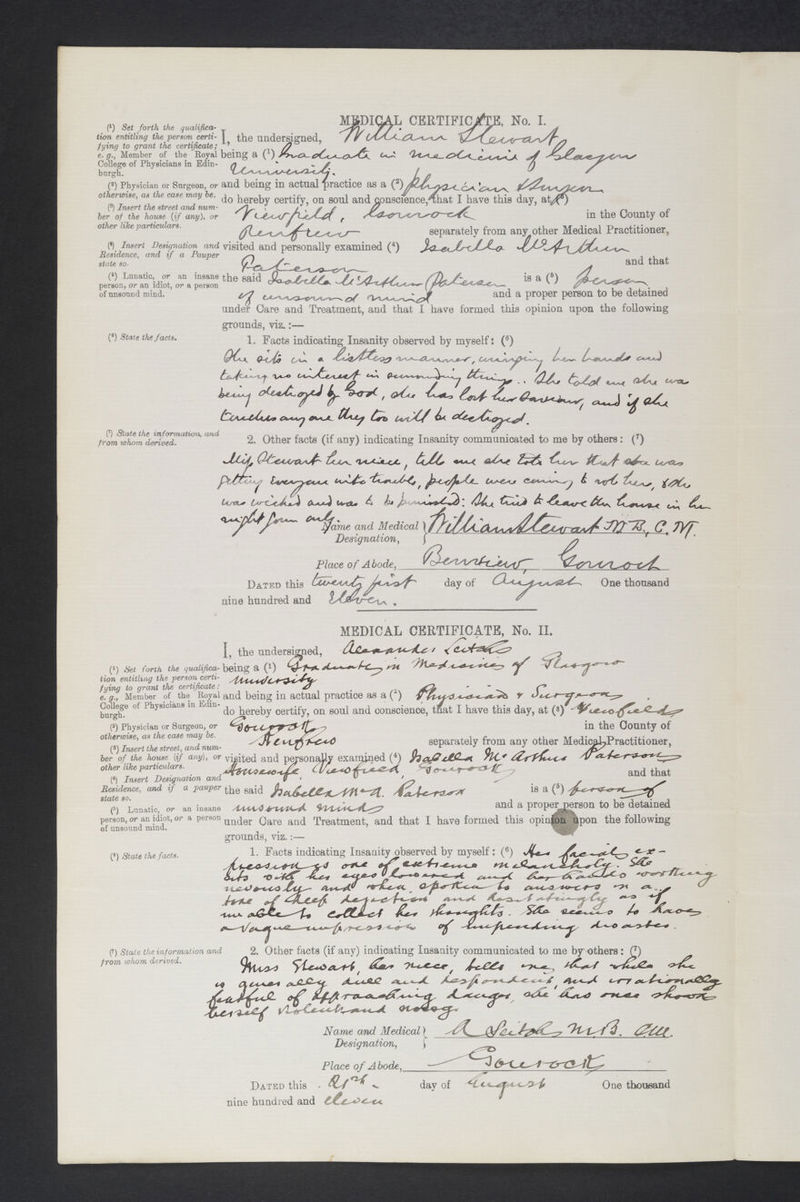 MEDICAL CERTIFICATE, No. I.
(¹) Set forth the qualifica-
tion entitling the person certi-
fying to grant the certificate;
e. g., Member of the Royal
College of Physicians in Edin-
burgh.
I, the undersigned, William Stewart
being a (¹) Graduate in medicine of Glasgow
University.
(²) Physician or Surgeon, or
otherwise, as the case may be.
and being in actual practice as a (²) Physician & Surgeon
do hereby certify, on soul and conscience, that I have this day, at (³)
(³) Insert the street and num-
ber of the house (if any), or
other like particulars.
Viewfield, Gourock in the County of
Renfrew separately from any other Medical Practitioner,
(⁴) Insert Designation and
Residence, and if a Pauper
state so.
visited and personally examined (⁴) Isabella McArthur
Paterson and that
(⁵) Lunatic, or an insane
person, or an idiot, or a person
of unsound mind.
the said Isabella McArthur Paterson is a (⁵) person
of unsound mind and a proper person to be detained
under Care and Treatment, and that I have formed this opinion upon the following
grounds, viz.:—
(⁶) State the facts.
1. Facts indicating Insanity observed by myself: (⁶)
She sits in a listless manner, wringing her hands and
taking no interest in surrounding things.. She told me she was
being destroyed by God, she has lost her Saviour, and if she
touches anyone they too will be destroyed.
(⁷) State the information, and
from whom derived.
2. Other facts (if any) indicating Insanity communicated to me by others: (⁷)
Miss Stewart her niece, tells me she told her that she was
getting everyone into trouble, people were coming to rob her, & she
was wicked and was to be punished: She tried to leave the house in her
night gown only.
Name and Medical Designation, William Stewart M.B., C.M.
Place of Abode, Benview, Gourock
DATED this twenty first day of August One thousand
nine hundred and Eleven.
MEDICAL CERTIFICATE, No. II.
I, the undersigned, Alexander Leitch
(¹) Set forth the qualifica-
tion entitling the person certi-
fying to grant the certificate:
e. g., Member of the Royal
College of Physicians in Edin-
burgh.
being a (¹) Graduate in Medicine of Glasgow
University
and being in actual practice as a (²) Physician & Surgeon
do hereby certify, on soul and conscience, that I have this day, at (³) Viewfield
(²) Physician or Surgeon, or
otherwise, as the case may be.
Gourock in the County of
Renfrew separately from any other Medical Practitioner,
(³) Insert the street, and num-
ber of the house (if any), or
other like particulars.
visited and personally examined (⁴) Isabella Mc Arthur Paterson
Housewife, Viewfield, Gourock and that
(⁴) Insert Designation and
Residence, and if a pauper
state so.
the said Isabella McA. Paterson is a (⁵) person of
(⁵) Lunatic, or an insane
person, or an idiot, or a person
of unsound mind.
unsound mind and a proper person to be detained
under Care and Treatment, and that I have formed this opinion upon the following
grounds, viz.:—
(⁶) State the facts.
1. Facts indicating Insanity observed by myself: (⁶) Her facial ex-
pression is one of extreme melancholy. She
sits with her eyes lowered and her hands working
nervously and when spoken to answers in a
tone of deep dejection and hesitatingly as if
unable to collect her thoughts. She seems to have
a vague impression of impending disaster.
(⁷) State the information and
from whom derived.
2. Other facts (if any) indicating Insanity communicated to me by others: (⁷)
Miss Stewart, her niece, tells me, that while she
is generally dull and despondent, and irrationally
fearful of approaching danger, she has once shown
herself violent and noisy.
Name and Medical Designation, A Leitch M.B. C.M.
Place of Abode, Gourock
DATED this 21st day of August One thousand
nine hundred and eleven